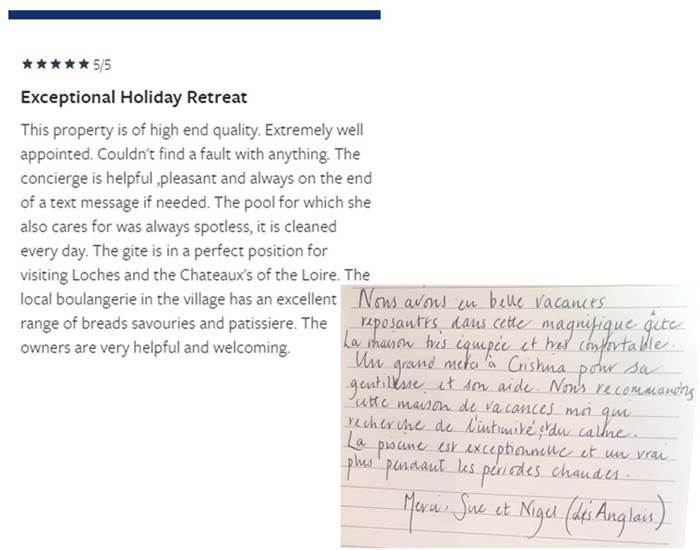 ★★★★★ 5/5
Exceptional Holiday Retreat
This property is of high end quality. Extremely well
appointed. Couldn't find a fault with anything. The
concierge is helpful ,pleasant and always on the end
of a text message if needed. The pool for which she
also cares for was always spotless, it is cleaned
every day. The gite is in a perfect position for
visiting Loches and the Chateaux's of the Loire. The
local boulangerie in the village has an excellent
range of breads savouries and patissiere. The
owners are very helpful and welcoming.
Nous avons eu belle vacances
reposantes dans cette magnifique gîte
La maison très équipée et très confortable.
Un grand merci à Cristina pour sa
gentillesse et son aide. Nous recommandons
cette maison de vacances moi qui
recherche de l'intimité, du calme.
La piscine est exceptionnelle et un vrai
plus pendant les périodes chaudes.
Merci, Sue et Nigel (dés Anglais)